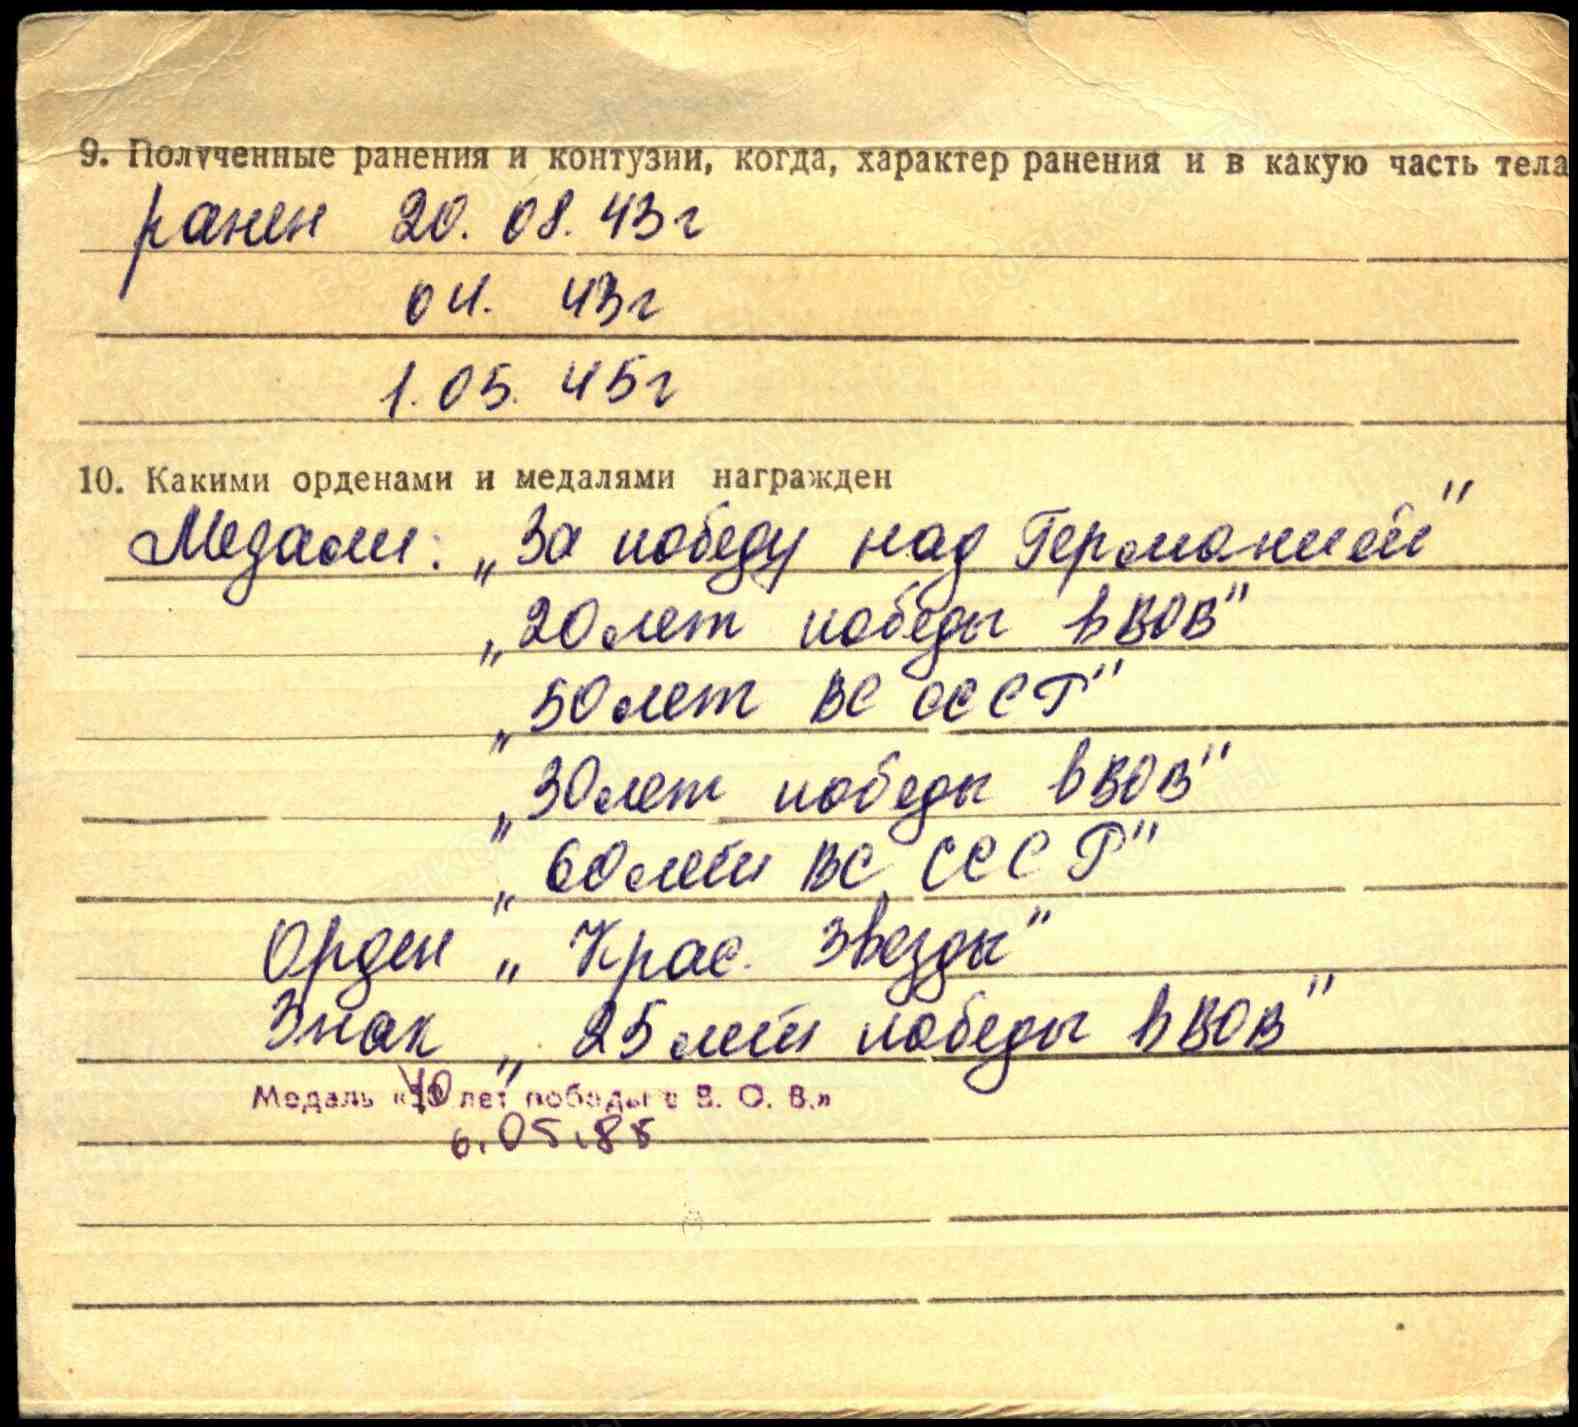 9. Полученные ранения и контузии, когда, характер ранения и в какую часть тела
ранен 20. 08. 43г
04. 43г
1. 05. 45г
10. Какими орденами и медалями награжден
Медали: „За победу над Германией"
„20 лет победы в ВОВ"
„50 лет ВС СССР"
„30 лет победы в ВОВ"
„60 лет ВС СССР"
Орден „Крас. Звезды"
Знак „25 лет победы в ВОВ"
Медаль «40 лет победы в В. О. В.»
6.05.85